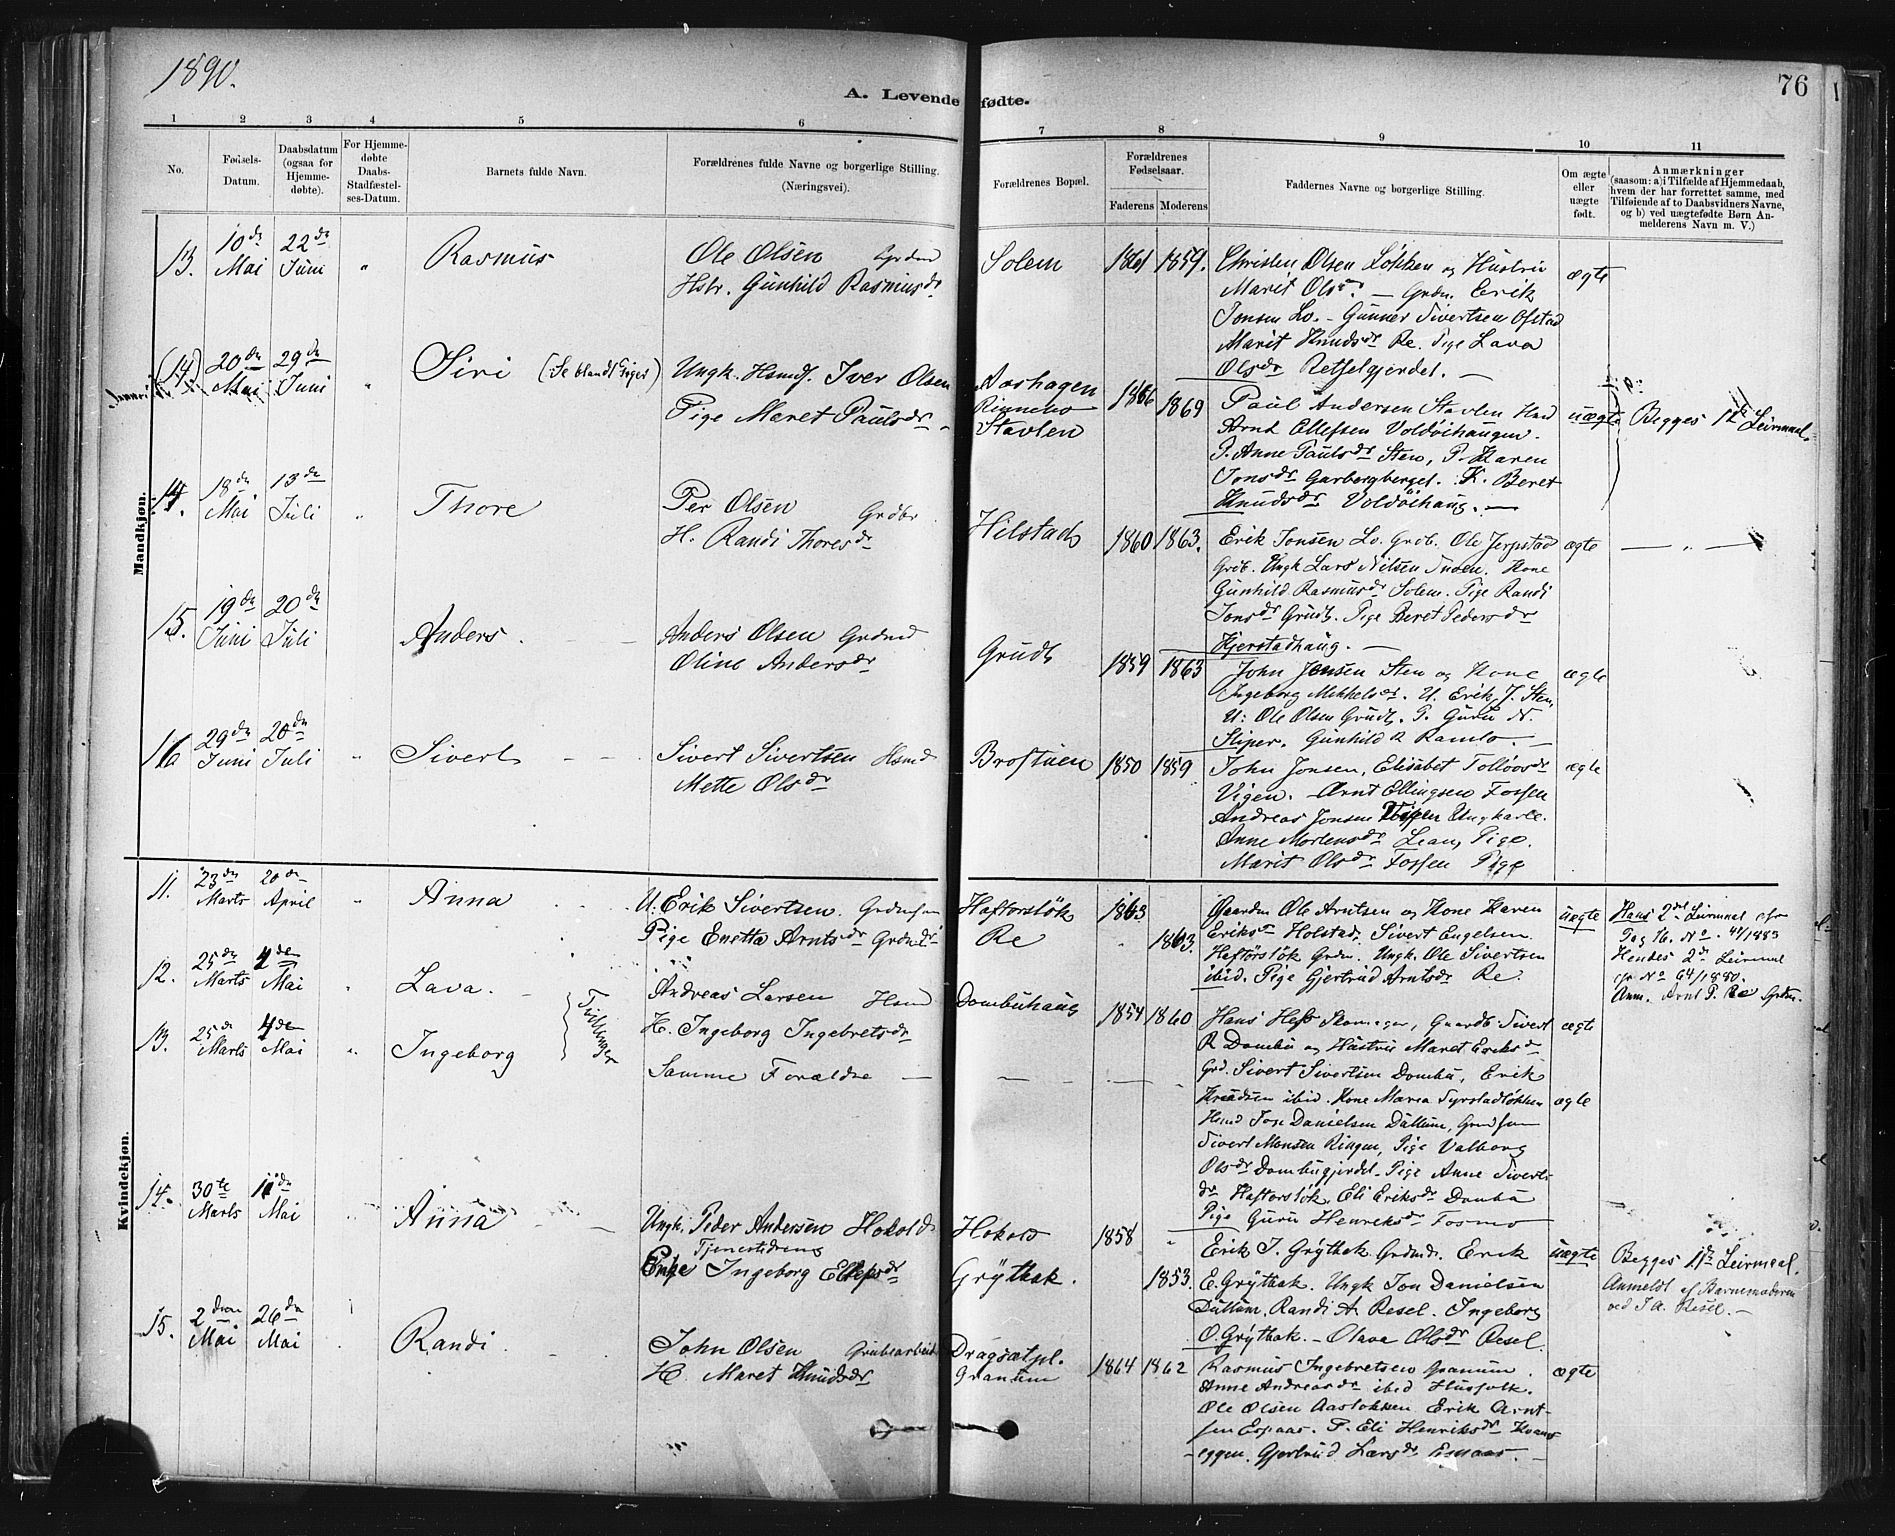 1890.
76
A. Levende fødte.
1 2 3 4 5 6 7 8 9 10 11
No.
Fødsels-
Datum.
Daabsdatum
(ogsaa for
Hjemme-
døbte).
For Hjemme-
døbte
Daabs-
Stadfæstel-
ses-Datum.
Barnets fulde Navn.
Forældrenes fulde Navne og borgerlige Stilling.
(Næringsvei).
Forældrenes Bopæl.
Forældrenes
Fødselsaar.
Faderens Moderens
Faddernes Navne og borgerlige Stilling.
Om ægte
eller
uægte
født.
Anmærkninger
(saasom: a) i Tilfælde af Hjemmedaab,
hvem der har forrettet samme, med
Tilføiende af to Daabsvidners Navne,
og b) ved uægtefødte Børn An-
melderens Navn m. V.)
Mandkjøn.
13. 10de Mai 22de Juni " Rasmus
Ole Olsen Grdmd
Hstr. Gunhild Rasmusdr
Solem 1861 1859.
Christen Olsen Løkken og Hustru
Marit Olsdr. — Grdm. Erik
Jonsen Lo. - Gunner Sivertsen Ofstad
Marit Knudsdr Re. Pige Lava
Olsdr Retselgjerdet. —
ægte
(14) 20de Mai 29de Juni " Siri (Se blandt Piger)
Ungk. Hsmdf. Iver Olsen
Pige Maret Paulsdr
Aashagen
Rinnebo
Stavlen
1866 1869
Paul Andersen Stavlen Hmd
Arnt Ellefsen Voldøihaugen.
P. Anne Paulsdr Sten, P. Karen
Jonsdr Garbergberget. K. Beret
Knudsdr Voldøihaug. —
uægte Begges 1te Leirmaal.
14. 18de Mai 13de Juli " Thore
Per Olsen Grdbr.
H. Randi Thoresdr
Hilstad 1860 1863.
Erik Jonsen Lo. Grdb. Ole Jerpstad
Grdb. Ungk Lars Nilsen Tuoen. Kone
Gunhild Rasmusdr Solem. Pige Randi
Jonsdr Grudt. Pige Beret Pedersdr
Hjerstadhaug. —
ægte — " —
15. 19de Juni 20de Juli Anders.
Anders Olsen Grdmd
Oline Andersdr
Grudt 1859 1863
John Jensen Sten og Kone
Ingeborg Mikkelsdr. U. Erik J. Sten,
U: Ole Olsen Grudt. P. Guru N.
Stiper. Gunhild R Ramlo. —
ægte
16 29de Juni 20de Juli " Sivert
Sivert Sivertsen Hsmd
Mette Olsdr
Brostuen 1850 1859
John Jonsen, Elisabet Tolløvsdr
Vigen. — Arnt Ellingsen Fossen
Andreas Jonsen Ungkarle.
Anne Mortensdr Lean, Pige.
Marit Olsdr Fossen Pige
ægte
Kvindekjøn.
11. 23de Marts 20de April " Anna
U: Erik Sivertsen. Grdmsøn
Pige Enetta Arntsdr Grdmdr
Haftorsløk
Re
1863
1863.
Gaardm Ole Arntsen og Kone Karen
Eriksdr Holstad. Sivert Engelsen
Haftorsløk Grdm. Ungk. Ole Sivertsen
ibid. Pige Gjertrud Arntsdr Re.
uægte
Hans 2det Leirmaal cfr
Pag 16. No. 44/1885
Hendes 2de Leirmal
cfr No 64/1880.
Anm. Arnt P. Re Grdm.
12. 25de Marts 4de Mai " Lava.
Andreas Larsen Hsmd
H. Ingeborg Ingebretsdr
Dombuhaug 1854 1860
Tvillinger
Hans Heft Skomager, Gaardb. Sivert
R Dombu og Hustru Maret Eriksdr
Grd. Sivert Sivertsen Dombu, Erik
ægte
13. 25de Marts 4de Mai " Ingeborg
Samme Forældre —
Knudsen ibid. Kone Marea Syrstadløkken
Hsmd Jon Danielsen Duttum, Grmdsøn
Sivert Monsen Ringen, Pige Valborg
Olsdr Dombugjerdet. Pige Anne Siverts-
dr Haftorsløk, Eli Eriksdr Dombu
Pige Guru Henriksdr Fosmo
ægte
14. 30te Marts 11de Mai Anna
Ungk. Peder Andersen Hokold
Tjenestedreng
Enke Ingeborg Ellefsdr
Hokold
Grytbak.
1858 "
1853.
Erik J. Grytbak Grdmd. Erik
E. Grytbak. Ungk Jon Danielsen
Duttum, Randi A. Resel. Ingeborg
O. Grytbak. — Olava Olsdr Resel.
uægte
Begges 1te Leirmaal.
Anmeldt af Barnemoderen
ved J A. Resel. —
15. 2den Mai 26de Mai Randi
John Olsen Grubearbeid.
H. Maret Knudsdr
Dragsætpl.
Granum
1864 1862
Rasmus Ingebretsen Granum.
Anne Andreasdr ibid Husfolk.
Ole Olsen Aasløkken Erik Arnt-
sen Espaas. P. Eli Henriksdr Kvams-
eggen. Gjertrud Larsdr Espaas. —
ægte